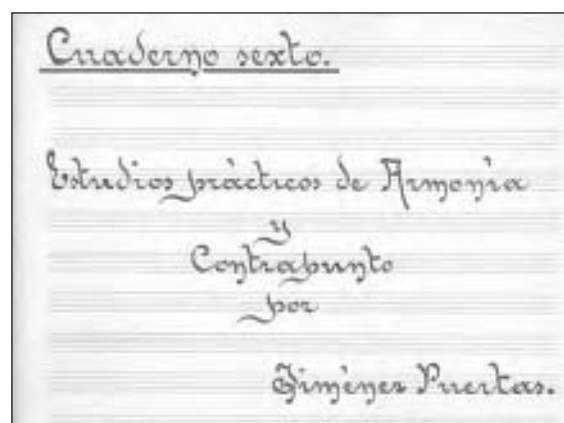 Cuaderno sexto.
Estudios prácticos de Armonía
y
Contrapunto
por
Jiménez Puertas.